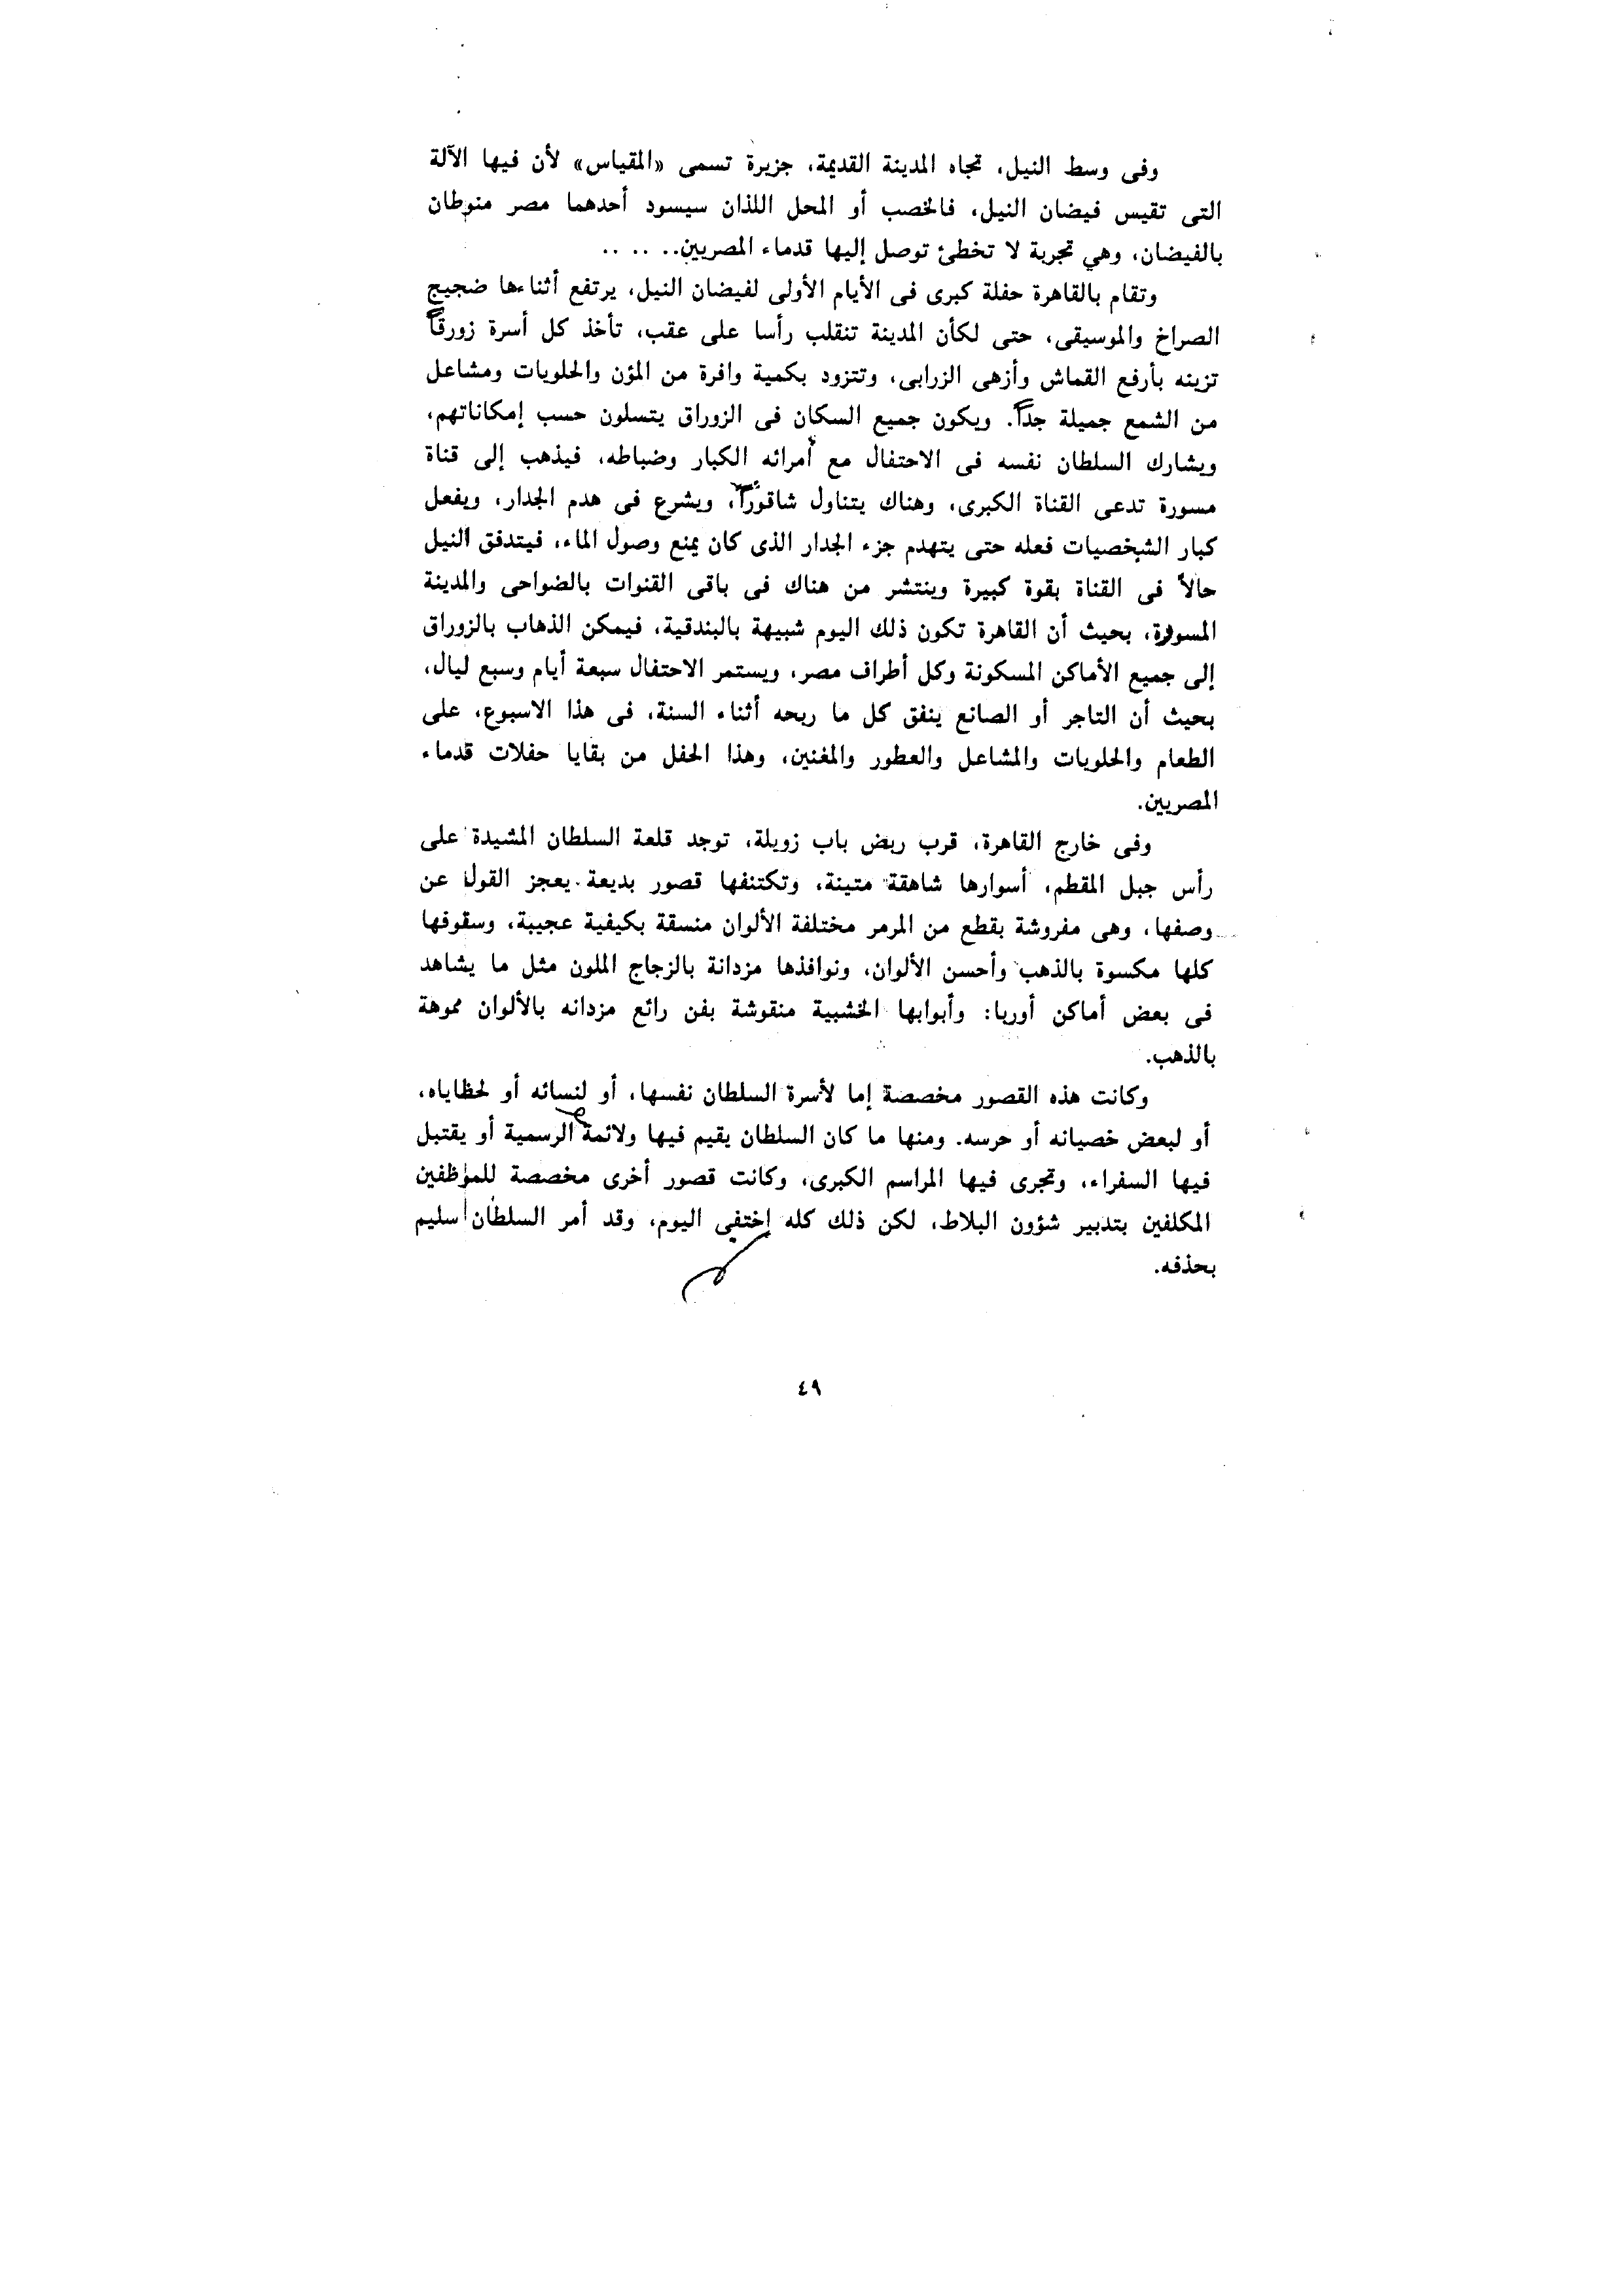 وفى وسط النيل، تجاه المدينة القديمة، جزيرة تسمى «المقياس» لأن فيها الآلة
التى تقيس فيضان النيل، فالخصب أو المحل اللذان سيسود أحدهما مصر منوطان
بالفيضان، وهي تجربة لا تخطئ توصل إليها قدماء المصريين.. .. ..
وتقام بالقاهرة حفلة كبرى فى الأيام الأولى لفيضان النيل، يرتفع أثناءها ضجيج
الصراخ والموسيقى، حتى لكأن المدينة تنقلب رأسا على عقب، تأخذ كل أسرة زورقاً
تزينه بأرفع القماش وأزهى الزرابى، وتتزود بكمية وافرة من المؤن والحلويات ومشاعل
من الشمع جميلة جداً. ويكون جميع السكان فى الزوراق يتسلون حسب إمكاناتهم،
ويشارك السلطان نفسه فى الاحتفال مع أمرائه الكبار وضباطه، فيذهب إلى قناة
مسورة تدعى القناة الكبرى، وهناك يتناول شاقوراً، ويشرع فى هدم الجدار، ويفعل
كبار الشخصيات فعله حتى يتهدم جزء الجدار الذى كان يمنع وصول الماء، فيتدفق النيل
حالاً فى القناة بقوة كبيرة وينتشر من هناك فى باقى القنوات بالضواحى والمدينة
المسورة، بحيث أن القاهرة تكون ذلك اليوم شبيهة بالبندقية، فيمكن الذهاب بالزوراق
إلى جميع الأماكن المسكونة وكل أطراف مصر، ويستمر الاحتفال سبعة أيام وسبع ليال،
بحيث أن التاجر أو الصانع ينفق كل ما ربحه أثناء السنة، فى هذا الاسبوع، على
الطعام والحلويات والمشاعل والعطور والمغنين، وهذا الحفل من بقايا حفلات قدماء
المصريين.
وفى خارج القاهرة، قرب ربض باب زويلة، توجد قلعة السلطان المشيدة على
رأس جبل المقطم، أسوارها شاهقة متينة، وتكتنفها قصور بديعة يعجز القول عن
وصفها، وهى مفروشة بقطع من المرمر مختلفة الألوان منسقة بكيفية عجيبة، وسقوفها
كلها مكسوة بالذهب وأحسن الألوان، ونوافذها مزدانة بالزجاج الملون مثل ما يشاهد
فى بعض أماكن أوربا: وأبوابها الخشبية منقوشة بفن رائع مزدانه بالألوان مموهة
بالذهب.
وكانت هذه القصور مخصصة إما لأسرة السلطان نفسها، أو لنسائه أو لحظاياه،
أو لبعض خصيانه أو حرسه. ومنها ما كان السلطان يقيم فيها ولائمة الرسمية أو يقتبل
فيها السفراء، وتجرى فيها المراسم الكبرى، وكانت قصور أخرى مخصصة للموظفين
المكلفين بتدبير شؤون البلاط، لكن ذلك كله إختفى اليوم، وقد أمر السلطان سليم
بحذفه.
٤٩